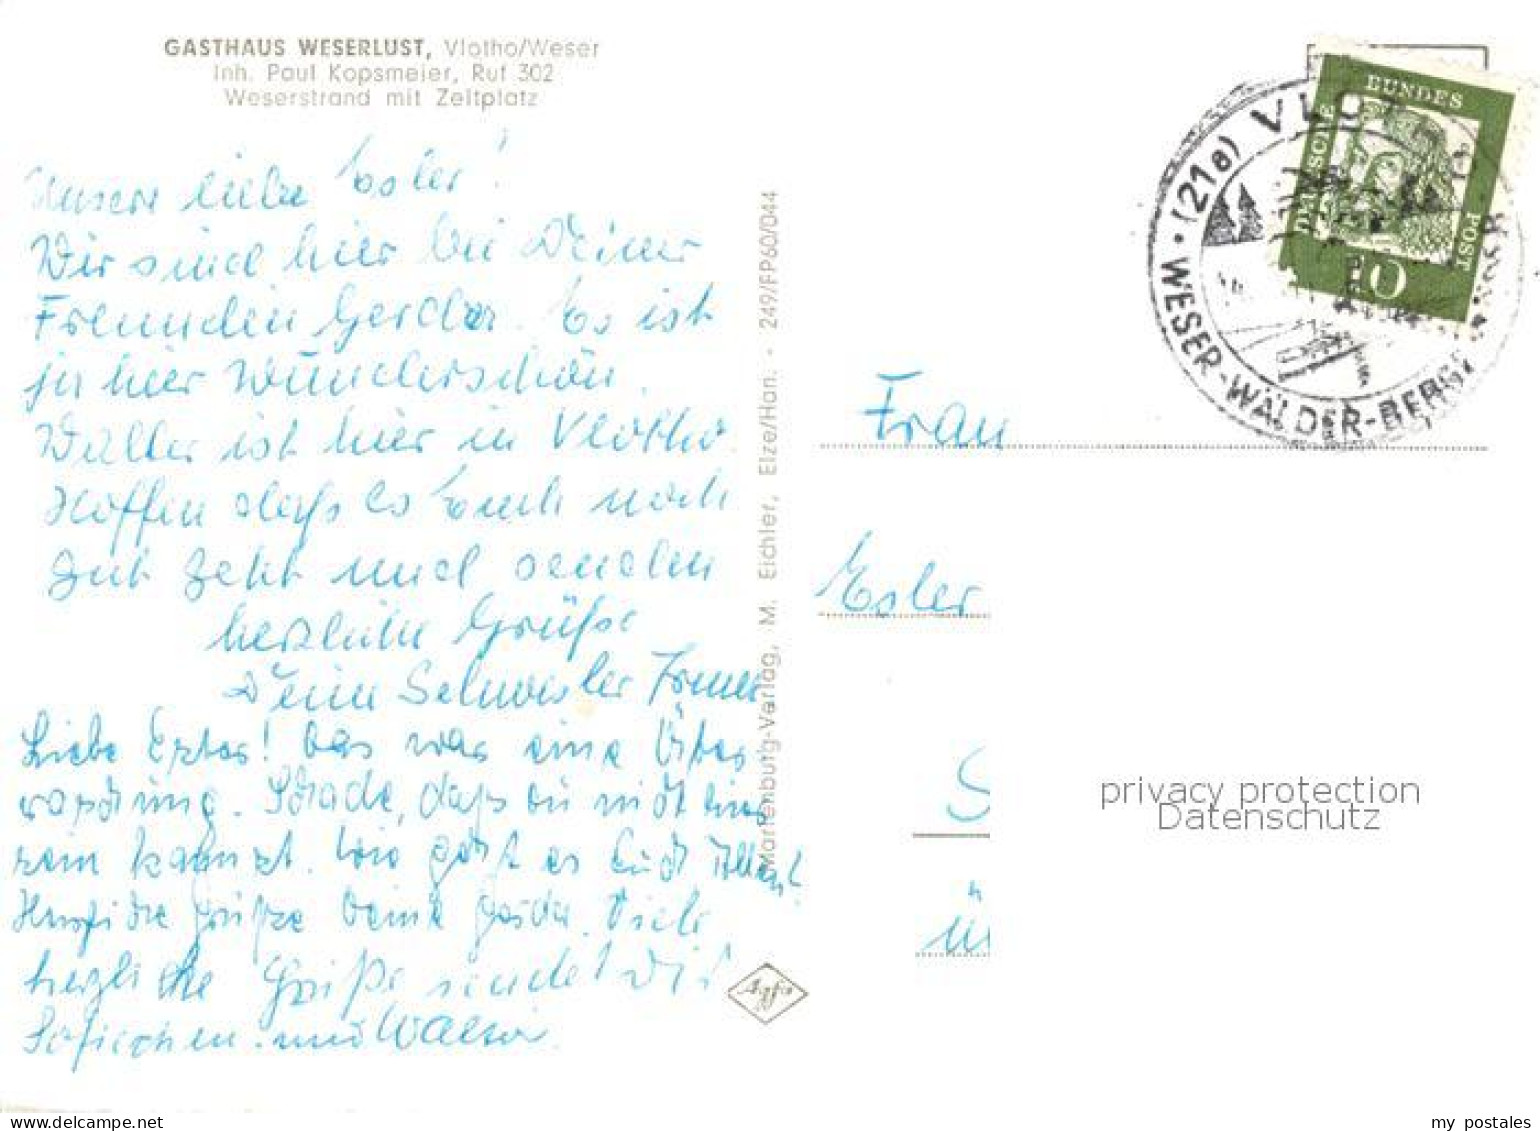 GASTHAUS WESERLUST, Vlotho/Weser
Inh. Paul Kopsmeier, Ruf 302
Weserstrand mit Zeltplatz
Unsere liebe Ester!
Wir sind hier bei Deiner
Freundin Gerda. Es ist
ja hier wunderschön.
Walter ist hier in Vlotho.
Hoffen daß es Euch noch
gut geht und senden
herzliche Grüße
Deine Schwester
Liebe Ester! Das war eine Über
raschung. Schade, daß du nicht
sein kannst. Wie geht es Euch Allen?
Grüße Deine Gerda. Viele
herzliche Grüße sendet Dir
und
Marienburg-Verlag, M. Eichler, Elze/Han. · 249/FP60/044
Agfa
DEUTSCHE BUNDESPOST
10
(21a) VLOTHO
WESER-WÄLDER-BERGE
Frau
Ester
S
privacy protection
Datenschutz
my postales